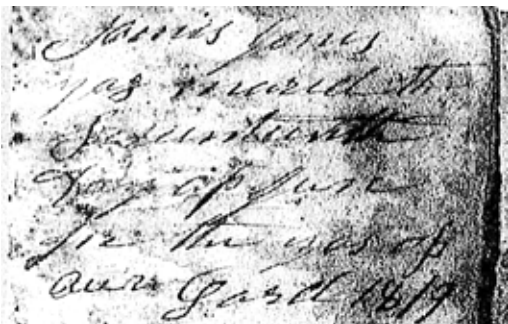 Jamis Jonis
was maried the
Seventeenth
Day of June
in the year of
our Lord 1819